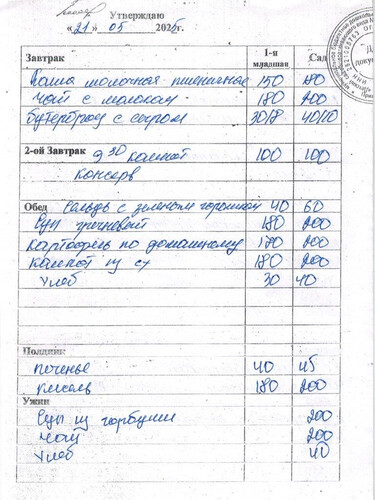 Утверждаю
«21» 05 2025г.
Завтрак 1-я младшая Сад
Каша молочная пшеничная 150 180
Чай с молоком 180 200
Бутерброд с сыром 30/8 40/10
2-ой Завтрак 9 30 компот 100 100
консерв
Обед Сельдь с зеленом горошком 40 60
Суп гречневый 180 200
Картофель по домашному 170 200
Компот из сх 180 200
Хлеб 30 40
Полдник
печенье 40 45
кисель 180 200
Ужин
Суп из горбуши 200
Чай 200
Хлеб 40